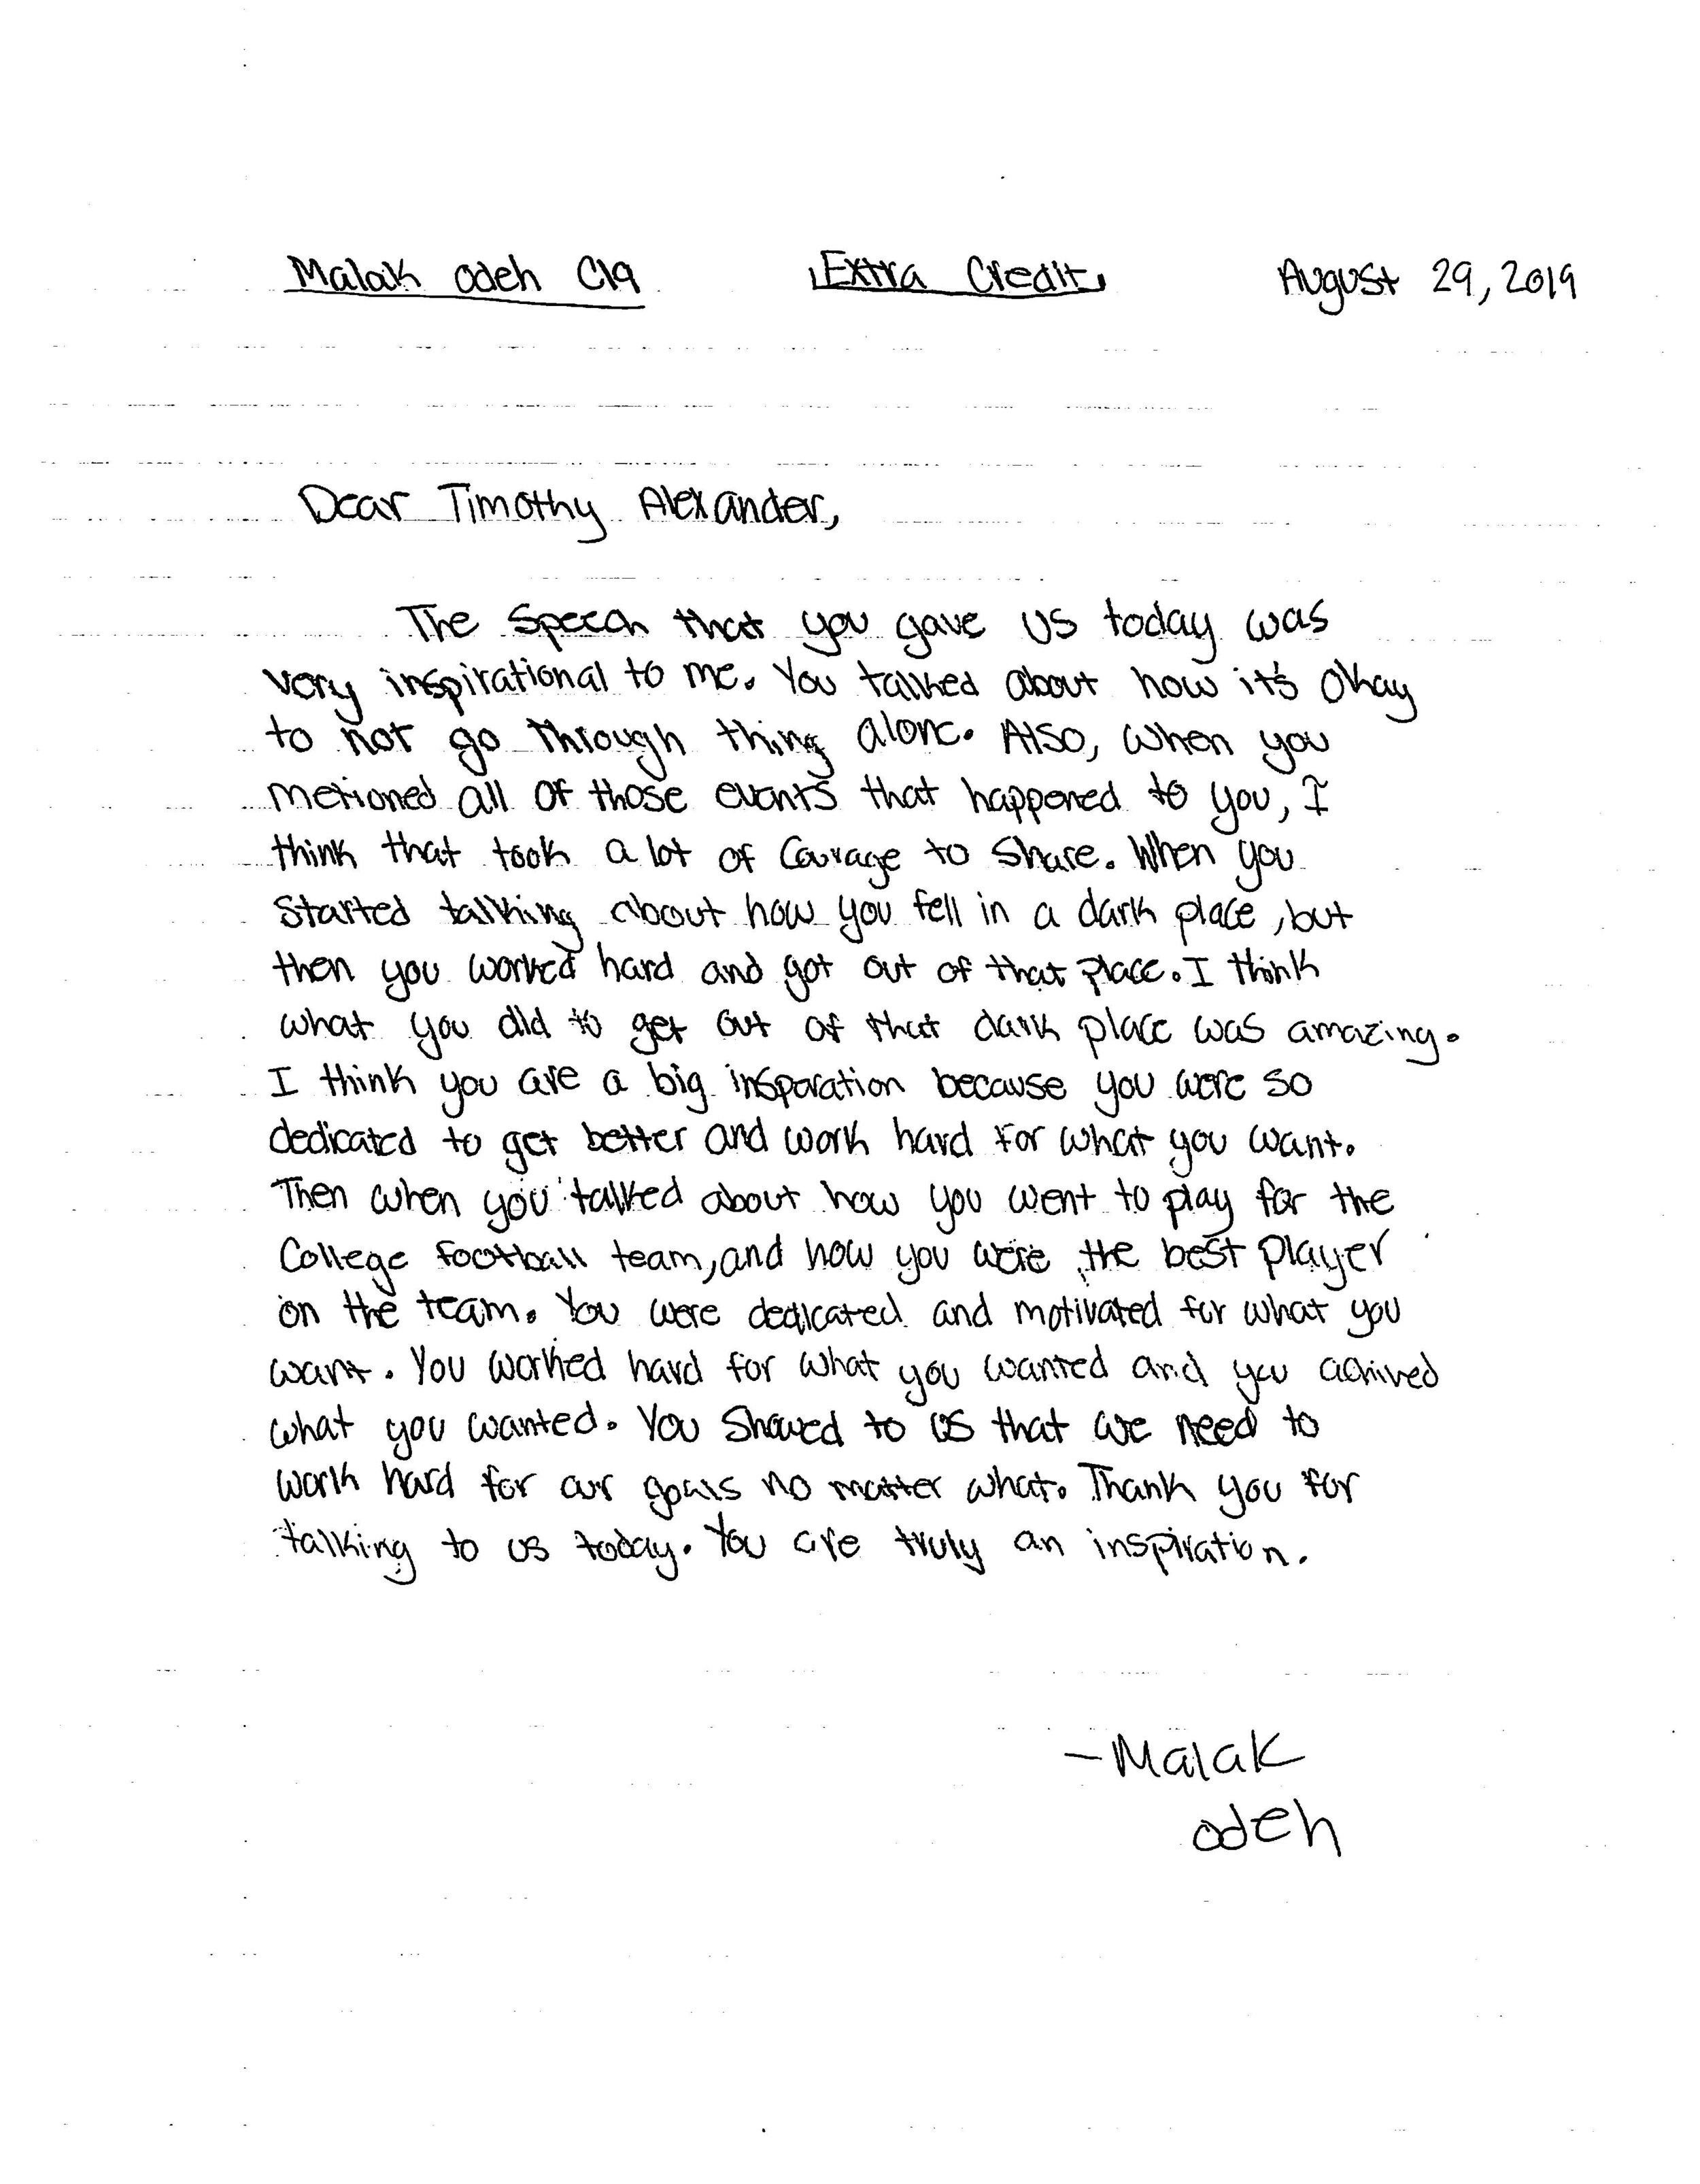 Malak odeh C19 Extra Credit August 29, 2019
Dear Timothy Alexander,
The speech that you gave us today was
very inspirational to me. You talked about how it's okay
to not go through thing alone. Also, when you
metioned all of those events that happened to you, I
think that took a lot of courage to share. When you
started talking about how you fell in a dark place, but
then you worked hard and got out of that place. I think
what you did to get out of that dark place was amazing.
I think you are a big insparation because you were so
dedicated to get better and work hard for what you want.
Then when you talked about how you went to play for the
College football team, and how you were the best player
on the team. You were dedicated and motivated for what you
want. You worked hard for what you wanted and you achived
what you wanted. You showed to us that we need to
work hard for our goals no matter what. Thank you for
talking to us today. You are truly an inspiration.
- Malak
odeh